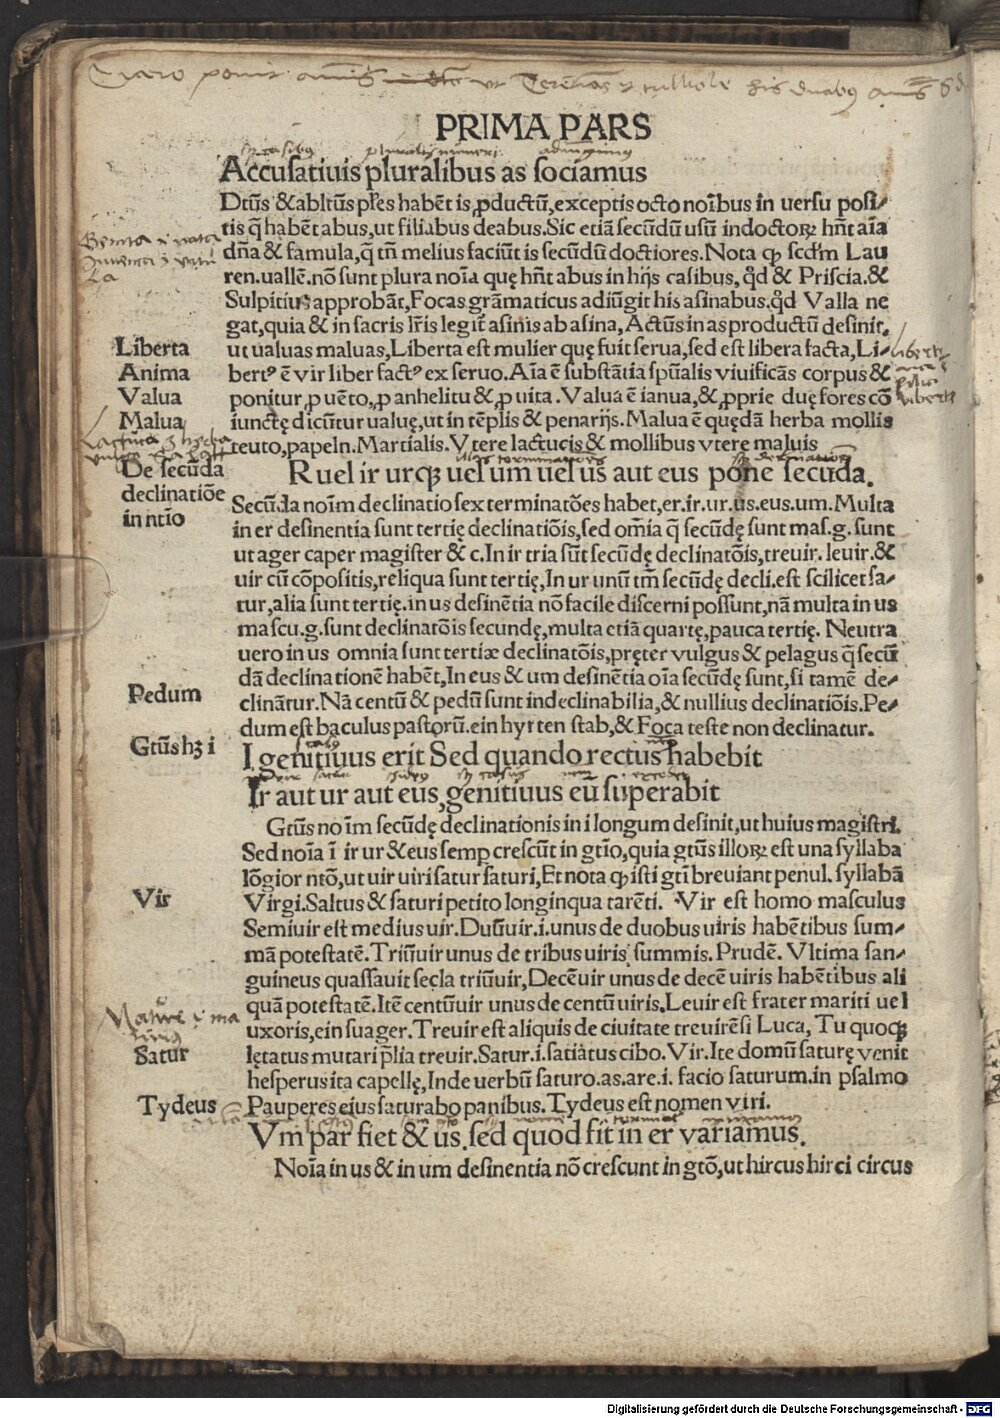 PRIMA PARS
Accusatiuis pluralibus as sociamus
Dtũs &abltũs pľes habēt is, ꝓductũ, exceptis octo noībus in uersu posi/
tis q̃ habēt abus, ut filiabus deabus. Sic etiã secũdũ usũ indoctoꝝ hñt aīa
dña & famula, q̃ tñ melius faciũt is secũdũ doctiores. Nota ꝙ scďm Lau
ren. uallē. nõ sunt plura noīa quę hñt abus in hijs casibus, qď & Priscia. &
Sulpitius approbãt, Focas grãmaticus adiũgit his asinabus. qď Valla ne
gat, quia & in sacris lr̃is legit̃ asinis ab asina, Actũs in as productũ desinit.
Liberta
ut ualuas maluas, Liberta est mulier quę fuit serua, sed est libera facta, Li/
Anima
bertꝰ ē vir liber factꝰ ex seruo. Aīa ē substãtia spũalis viuificãs corpus &
Valua
ponitur ꝓ uēto, ꝓ anhelitu & ꝓ uita. Valua ē ianua, & ꝓprie duę fores cõ
Malua
iunctę dicũtur ualuę, ut in tēplis & penarijs. Malua ē quędã herba mollis
teuto, papeln. Martialis. Vtere lactucis & mollibus vtere maluis
De secũda
declinatiõe
in ntĩo
R uel ir ur qꝫ uel um uel us aut eus pone secũda.
Secũda noĩm declinatio sex terminatões habet, er. ir. ur. us. eus. um. Multa
in er desinentia sunt tertię declinatiõis, sed omĩa q̃ secũdę sunt mas. g. sunt
ut ager caper magister & c. In ir tria sũt secũdę declinatõis, treuir. leuir. &
uir cũ cõpositis, reliqua sunt tertię, In ur unũ tm̃ secũdę decli. est scilicet sa/
tur, alia sunt tertię. in us desinētia nõ facile discerni possunt, nã multa in us
mascu. g. sunt declinatõis secundę, multa etiã quartę, pauca tertię. Neutra
uero in us omnia sunt tertiæ declinatõis, pręter vulgus & pelagus q̃ secũ
dã declinationē habēt, In eus & um desinētia oīa secũdę sunt, si tamē de/
Pedum
clinãtur. Nã centũ & pedũ sunt indeclinabilia, & nullius declinatiõis. Pe/
dum est baculus pastorũ. ein hyrten stab, & Foca teste non declinatur.
Gtũs hꝫ i
I genitiuus erit Sed quando rectus habebit
Ir aut ur aut eus, genitiuus eũ superabit
Gtũs noĩm secũdę declinationis in i longum desinit, ut huius magistri.
Sed noīa ī ir ur & eus semp crescũt in gtĩo, quia gtũs illoꝝ est una syllaba
lõgior ntõ, ut uir uiri satur saturi, Et nota ꝙ isti gtĩ breuiant penul. syllabã
Vir
Virgi. Saltus & saturi petito longinqua tarēti. Vir est homo masculus
Semiuir est medius uir. Duũuir. i. unus de duobus uiris habētibus sum/
mã potestatē. Triũuir unus de tribus uiris summis. Prudē. Vltima san/
guineus quassauit secla triũuir, Decēuir unus de decē uiris habētibus ali
quã potestatē. Itē centũuir unus de centũ uiris. Leuir est frater mariti uel
uxoris, ein suager. Treuir est aliquis de ciuitate treuirēsi Luca, Tu quoqꝫ
Satur
lętatus mutari p̃lia treuir. Satur. i. satiatus cibo. Vir. Ite domũ saturę venit
hesperus ita capellę, Inde uerbũ saturo. as. are. i. facio saturum. in psalmo
Tydeus
Pauperes eius saturabo panibus. Tydeus est nomen viri.
Vm par fiet & us. sed quod fit in er variamus.
Noīa in us & in um desinentia nõ crescunt in gtõ, ut hircus hirci circus
Digitalisierung gefördert durch die Deutsche Forschungsgemeinschaft - DFG